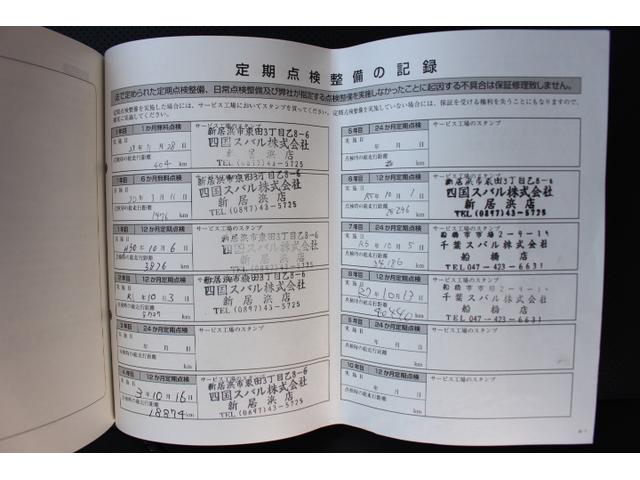 定期点検整備の記録
法で定められた定期点検整備、日常点検整備及び弊社が指定する点検整備を実施しなかったことに起因する不具合は保証修理致しません。
定期点検整備を実施した場合には、サービス工場においてスタンプを貰ってください。定期点検整備を実施していない場合には、保証を受ける権利を失うこともありますので、
確実に実施してください。
1年目 1か月無料点検
サービス工場のスタンプ
実施日
年 月 日
点検時の総走行距離
404 km
新居浜市東田3丁目乙8-6
四国スバル株式会社
新居浜店
TEL (0897)43-5725
1年目 6か月無料点検
サービス工場のスタンプ
実施日
年 月 日
点検時の総走行距離
km
新居浜市東田3丁目乙8-6
四国スバル株式会社
新居浜店
TEL (0897)43-5725
1年目 12か月定期点検
サービス工場のスタンプ
実施日
H30年10月6日
点検時の総走行距離
3876 km
新居浜市東田3丁目乙8-6
四国スバル株式会社
新居浜店
TEL (0897)43-5725
2年目 12か月定期点検
サービス工場のスタンプ
実施日
R1年10月3日
点検時の総走行距離
km
新居浜市東田3丁目乙8-6
四国スバル株式会社
新居浜店
TEL (0897)43-5725
3年目 24か月定期点検
サービス工場のスタンプ
実施日
年 月 日
点検時の総走行距離
km
4年目 12か月定期点検
サービス工場のスタンプ
実施日
3年10月16日
点検時の総走行距離
18874 km
新居浜市東田3丁目乙8-6
四国スバル株式会社
新居浜店
TEL (0897)43-5725
5年目 24か月定期点検
サービス工場のスタンプ
実施日
年 月 日
点検時の総走行距離
km
6年目 12か月定期点検
サービス工場のスタンプ
実施日
R5年10月1日
点検時の総走行距離
km
新居浜市東田3丁目乙8-6
四国スバル株式会社
新居浜店
TEL (0897)43-5725
7年目 24か月定期点検
サービス工場のスタンプ
実施日
R6年10月5日
点検時の総走行距離
34186 km
船橋市市場2-9-14
千葉スバル株式会社
船橋店
TEL.047-423-6631
8年目 12か月定期点検
サービス工場のスタンプ
実施日
R7年10月13日
点検時の総走行距離
40440 km
船橋市市場2-9-14
千葉スバル株式会社
船橋店
TEL.047-423-6631
9年目 24か月定期点検
サービス工場のスタンプ
実施日
年 月 日
点検時の総走行距離
km
10年目 12か月定期点検
サービス工場のスタンプ
実施日
年 月 日
点検時の総走行距離
km